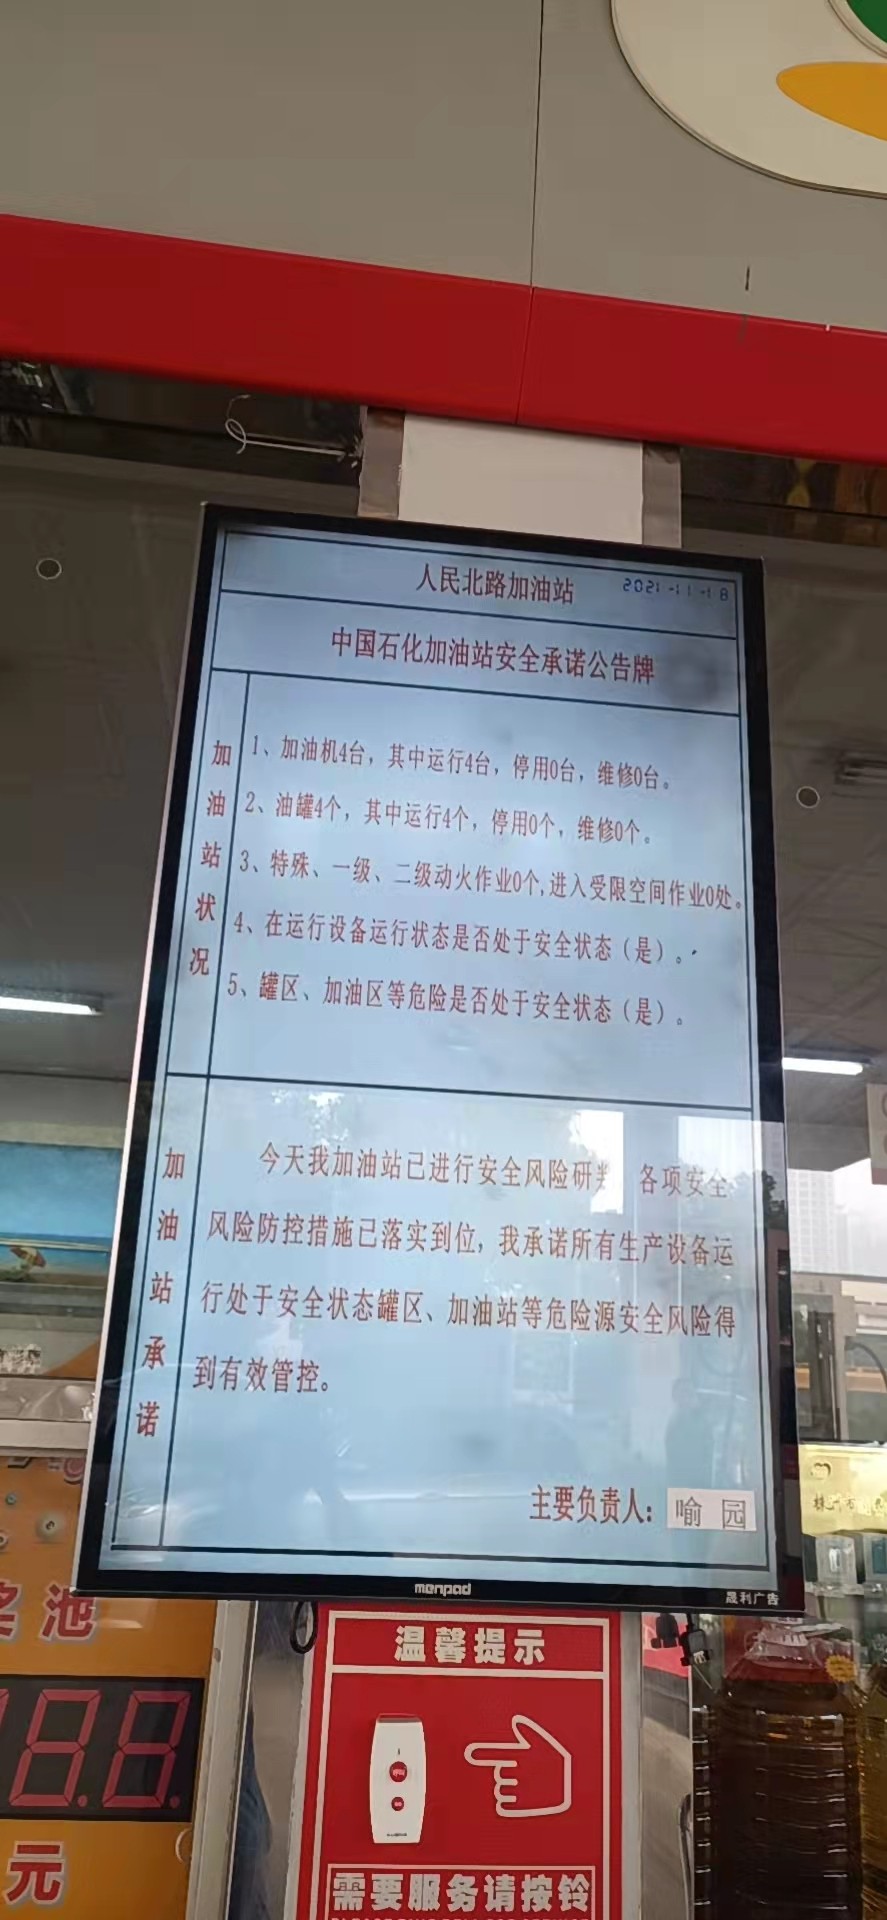 人民北路加油站
2021-11-18
中国石化加油站安全承诺公告牌
加油站状况
1、加油机4台，其中运行4台，停用0台，维修0台。
2、油罐4个，其中运行4个，停用0个，维修0个。
3、特殊、一级、二级动火作业0个,进入受限空间作业0处。
4、在运行设备运行状态是否处于安全状态（是）。
5、罐区、加油区等危险是否处于安全状态（是）。
加油站承诺
今天我加油站已进行安全风险研判 各项安全
风险防控措施已落实到位，我承诺所有生产设备运
行处于安全状态罐区、加油站等危险源安全风险得
到有效管控。
主要负责人：喻 园
menpad
晟利广告
温馨提示
需要服务请按铃
池
8.8.
元